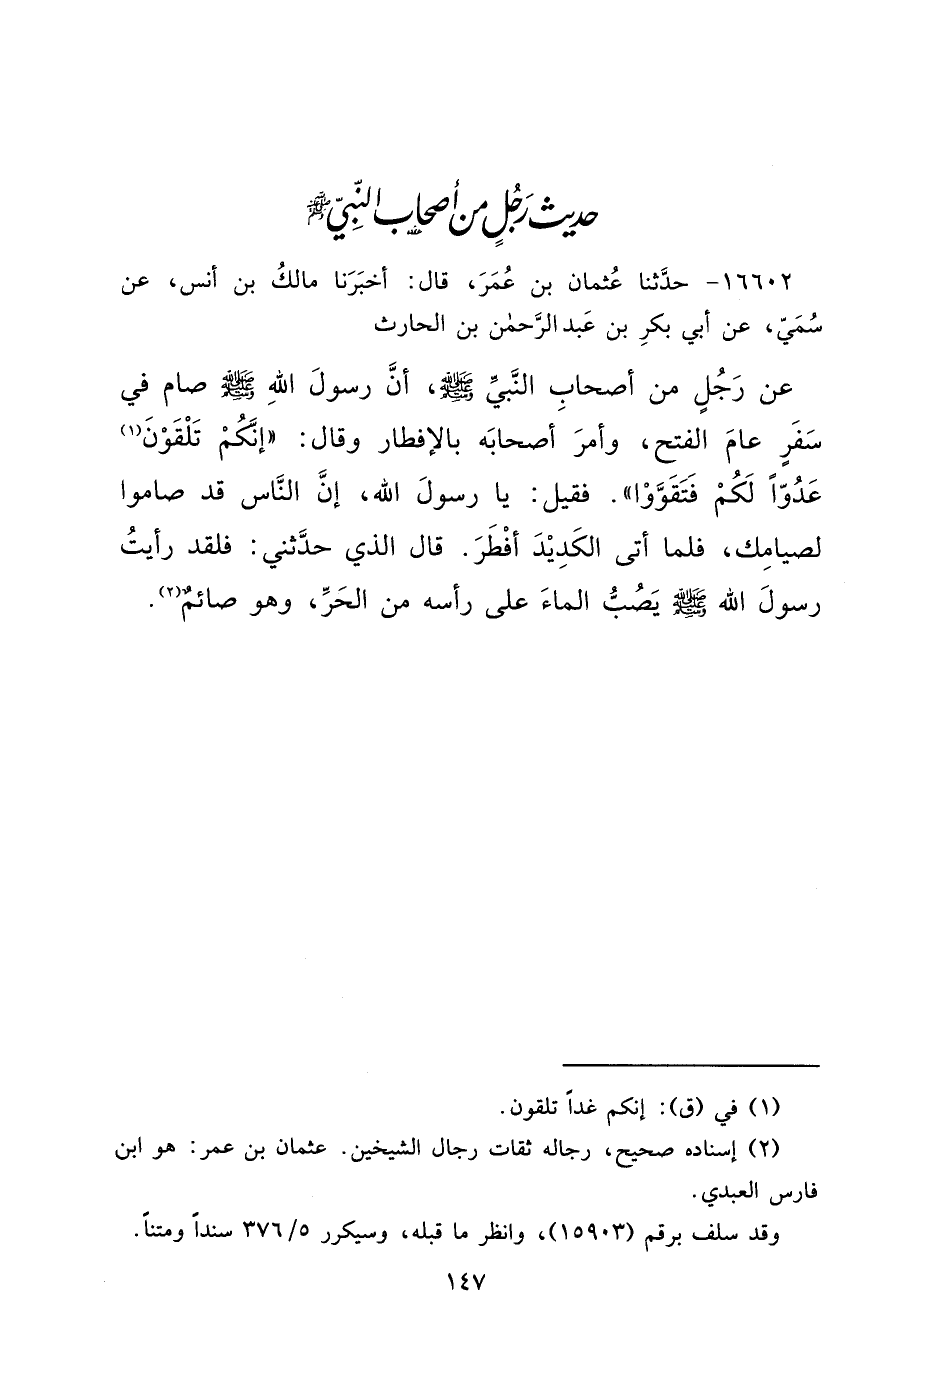 حديث رَجُلٍ من أصحاب النَّبِيّ ﷺ
١٦٦٠٢- حدَّثنا عُثمان بن عُمَرَ، قال: أخبَرَنا مالكُ بن أنس، عن
سُمَيّ، عن أبي بكرِ بن عَبد الرَّحمٰن بن الحارث
عن رَجُلٍ من أصحابِ النَّبيِّ ﷺ، أنَّ رسولَ اللهِ ﷺ صام في
سَفَرٍ عامَ الفتح، وأمرَ أصحابَه بالإفطار وقال: «إنَّكُمْ تَلْقَوْنَ(١)
عَدُوّاً لَكُمْ فَتَقَوَّوْا». فقيل: يا رسولَ الله، إنَّ النَّاس قد صاموا
لصيامِك، فلما أتى الكَدِيْدَ أفْطَرَ. قال الذي حدَّثني: فلقد رأيتُ
رسولَ الله ﷺ يَصُبُّ الماءَ على رأسه من الحَرِّ، وهو صائمٌ(٢).
(١) في (ق): إنكم غداً تلقون.
(٢) إسناده صحيح، رجاله ثقات رجال الشيخين. عثمان بن عمر: هو ابن
فارس العبدي.
وقد سلف برقم (١٥٩٠٣)، وانظر ما قبله، وسيكرر ٥/ ٣٧٦ سنداً ومتناً.
١٤٧